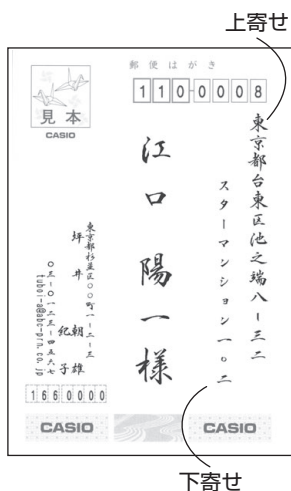 上寄せ
郵便はがき
110-0008
見本
CASIO
東京都台東区池之端八ー三二
スターマンション一〇二
江口 陽一様
東京都杉並区〇〇町一ー二ー三
坪井 朝雄
紀子
〇三ー〇一二三ー四五六七
tuboi-a@abc-prn.co.jp
1660000
CASIO
CASIO
下寄せ